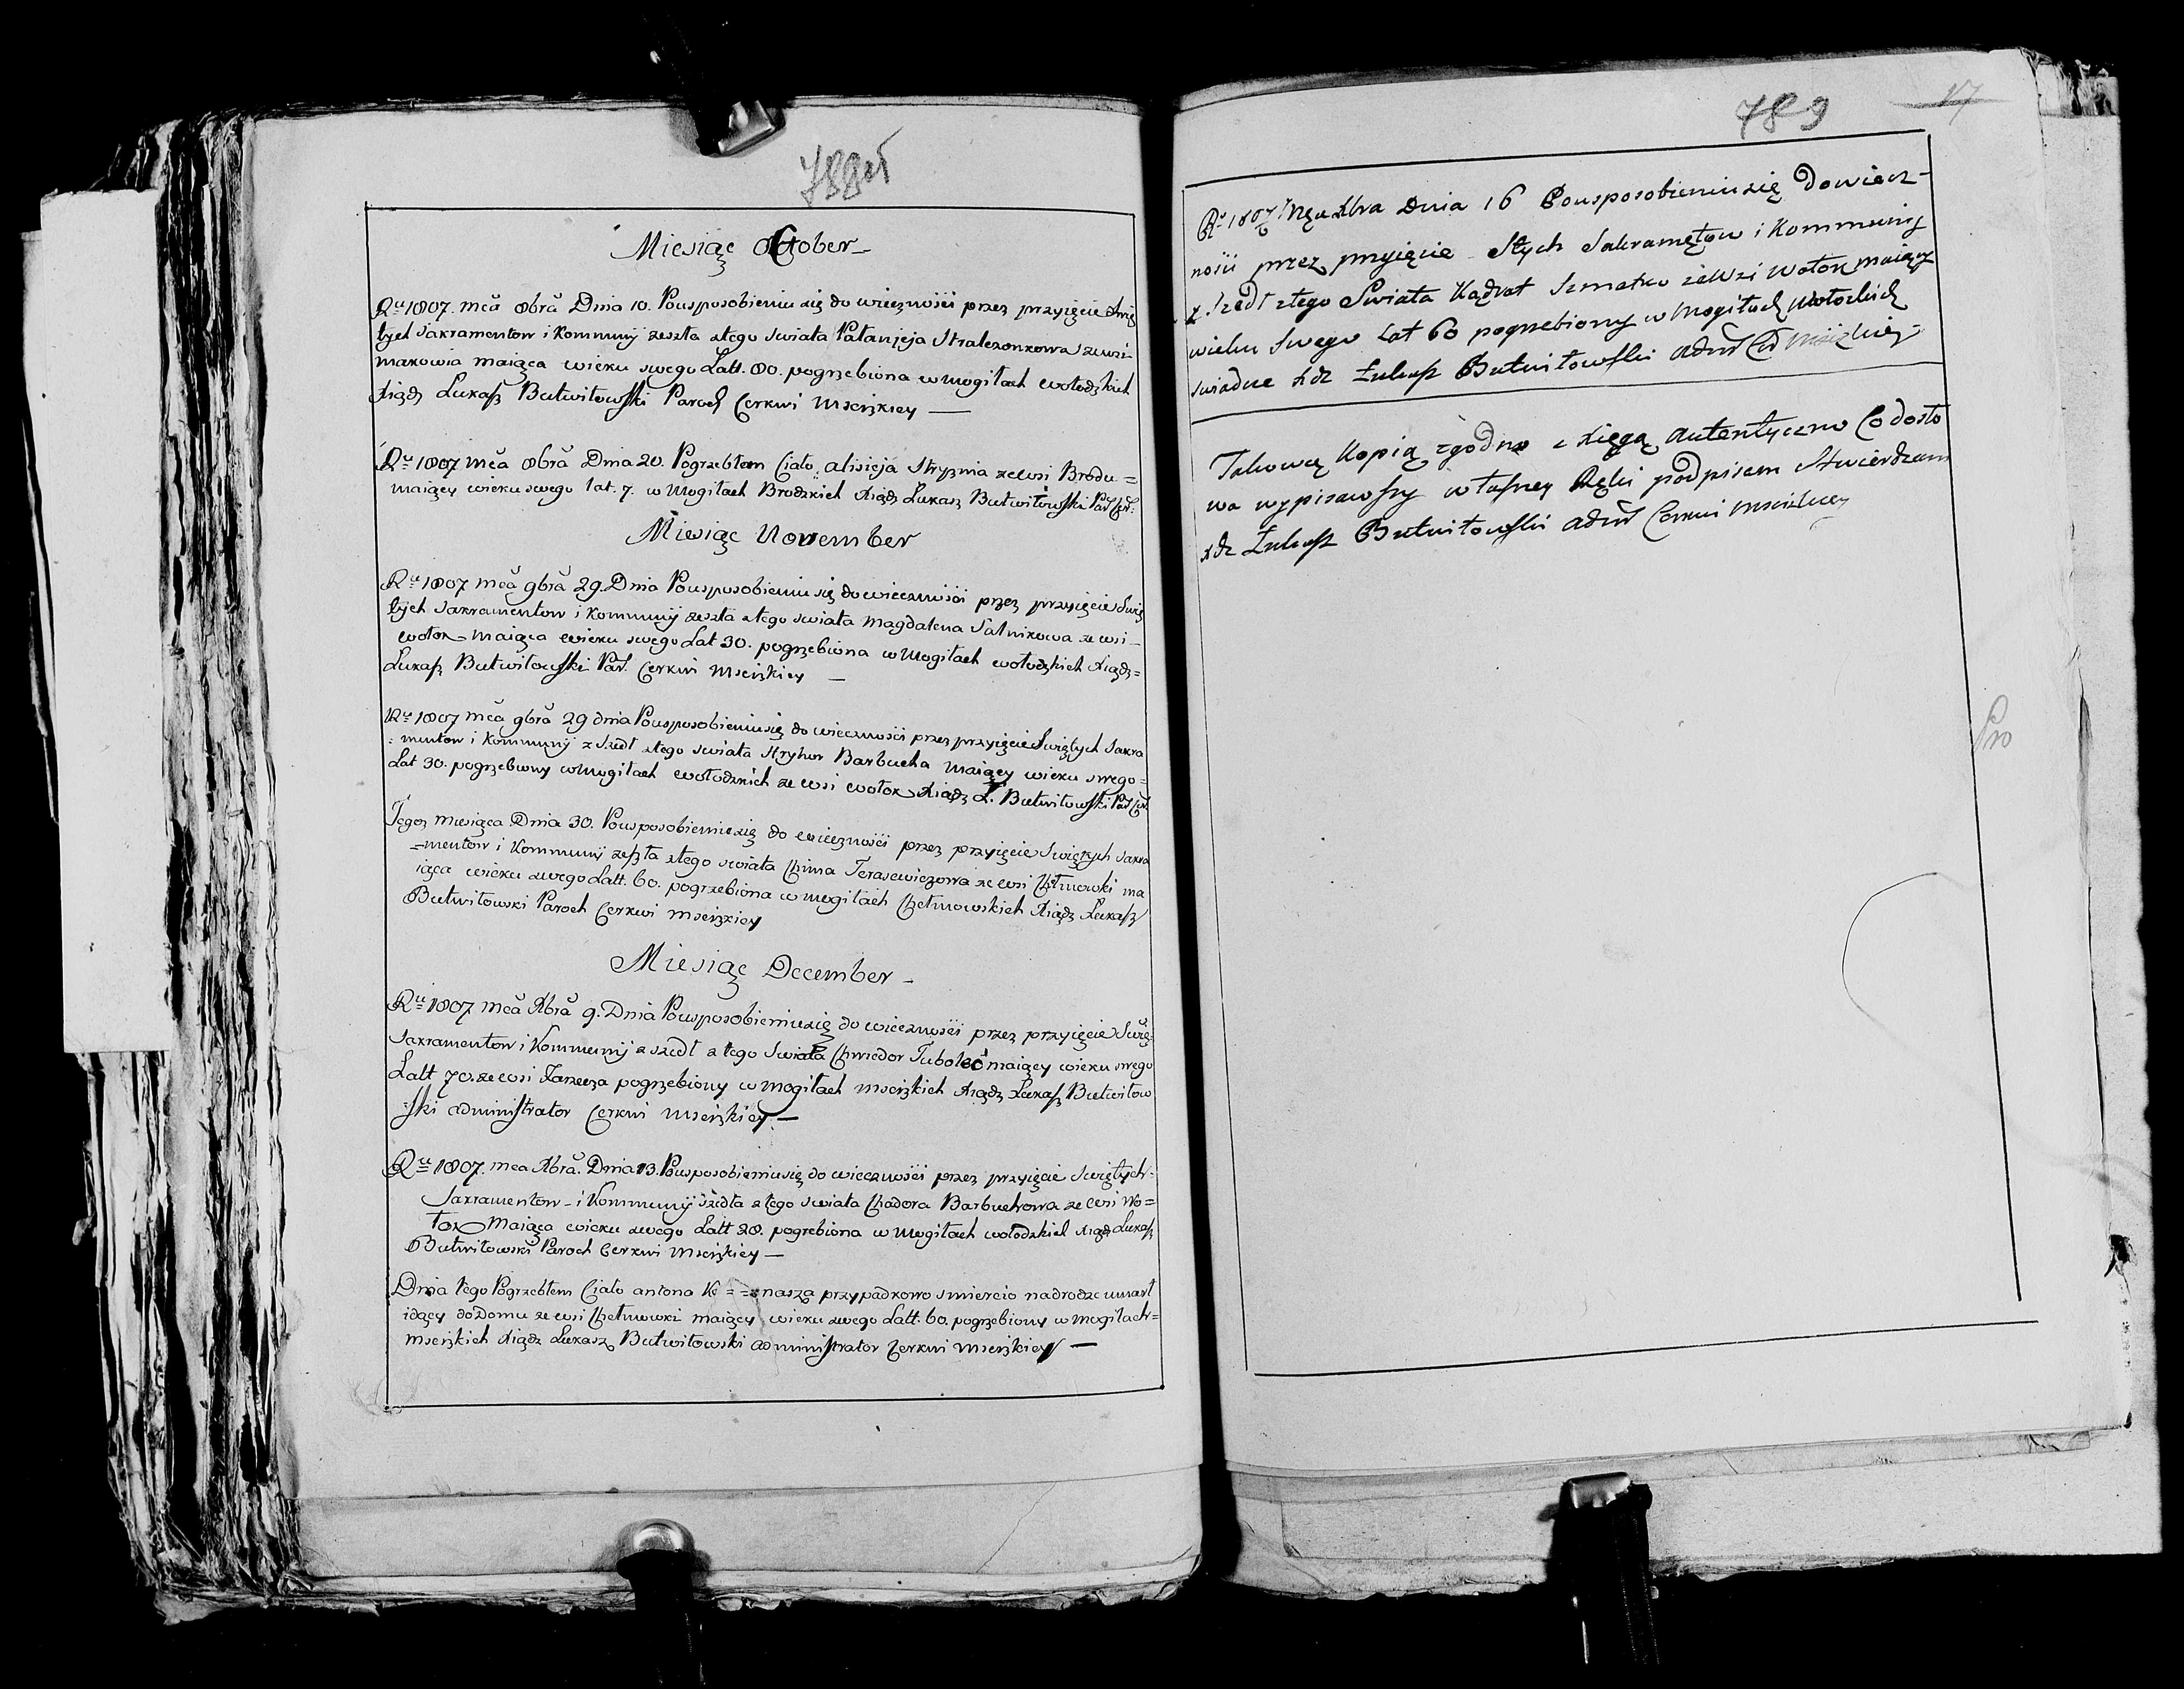 788 об
Miesiąc October
Ru 1807. mca 8bra Dnia 10. Pousposobieniu się do wieczności przez przyięcie Swię
tych Sakramentow i Kommunij zeszła ztego swiata Patanjeja Stralczonkowa ze wsi
makowia maiąca wieku swego Latt. 80. pogrzebiona w mogiłach wołodzkich
Xiądz Łukasz Butwiłowski Paroch Cerkwi Mscizkiey —
Ru 1807 mca 8bra Dnia 20. Pogrzebłem Ciało alisieja ze wsi Brodu =
maiący wieku swego lat. 7. w Mogiłach Brodzkich Xiądz Łukasz Butwiłowski Par Cer:
Miesiąc November
Ru 1807 mca 9bra 29. Dnia Pousposobieniu się do wieczności przez przyięcie Swię
tych Sakramentow i Kommunij zeszła ztego swiata Magdalena Salnikowa ze wsi —
wołok maiąca wieku swego Lat 30. pogrzebiona w Mogiłach wołodzkich Xiądz =
Łukasz Butwiłowski Par. Cerkwi Mscizkiey —
Ru 1807 mca 9bra 29 dnia Pousposobieniu się do wieczności przez przyięcie Swiętych Sakra
= mentow i Kommunij z szedł ztego swiata Hryhor Barbucha maiący wieku swego =
Lat 30. pogrzebiony w Mogiłach wołodzkich ze wsi wołok Xiądz Ł. Butwiłowski Par Cer
Tegoz miesiąca Dnia 30. Pousposobieniu się do wieczności przez przyięcie Swiętych Sakra
= mentow i Kommunij zeszła ztego swiata Chima Terasewiczowa ze wsi ma
iąca wieku swego Latt. 60. pogrzebiona w mogiłach Chełmowskich Xiądz Łukasz
Butwiłowski Paroch Cerkwi Mscizkiey
Miesiąc December —
Ru 1807 mca Xbra 9. Dnia Pousposobieniu się do wieczności przez przyięcie Swię:
Sakramentow i Kommunij z szedł ztego Swiata Chwiedor maiący wieku swego
Latt 70. ze wsi Zarzecza pogrzebiony w mogiłach mscizkich Xiądz Łukasz Butwiłow
ski administrator Cerkwi Mscizkiey —
Ru 1807. mca Xbra. Dnia 13. Pousposobieniu się do wieczności przez przyięcie Swiętych =
Sakramentow – i Kommunij szedła ztego swiata Chadora Barbuchowa ze wsi Wo =
łok maiąca wieku swego Latt 28. pogrebiona w Mogiłach wołodzkich Xiądz Łukasz
Butwiłowski Paroch Cerkwi Mscizkiey —
Dnia tego Pogrzebłem Ciało antona przypadkowo smiercio nadrodze umarł
idący do Domu ze wsi Chełmowki maiący wieku swego Latt. 60. pogrzebiony w mogiłach =
mscizkich Xiądz Łukasz Butwiłowski administrator Cerkwi Mscizkiey —
789
17
Ru 1807 Mca Xbra Dnia 16 Pousposobieniu się dowiecz-
nosci przez przyięcie Stych Sakramętow i Kommunij
z szedł ztego Swiata Kądrat Szmatko ze Wsi Wołok maiący
wieku swego Lat 60 pogrzebiony w Mogiłach Wołockich
swiadczę Xdz Łukasz Butwiłowski adm Cer Mscizkiey
Takową Kopią zgodno z Xięgą autentyczno Co dosło
wa wypisawszy własney Ręki podpisem Stwierdzam
Xdz Łukasz Butwiłowski adm Cerkwi Mscizkiey